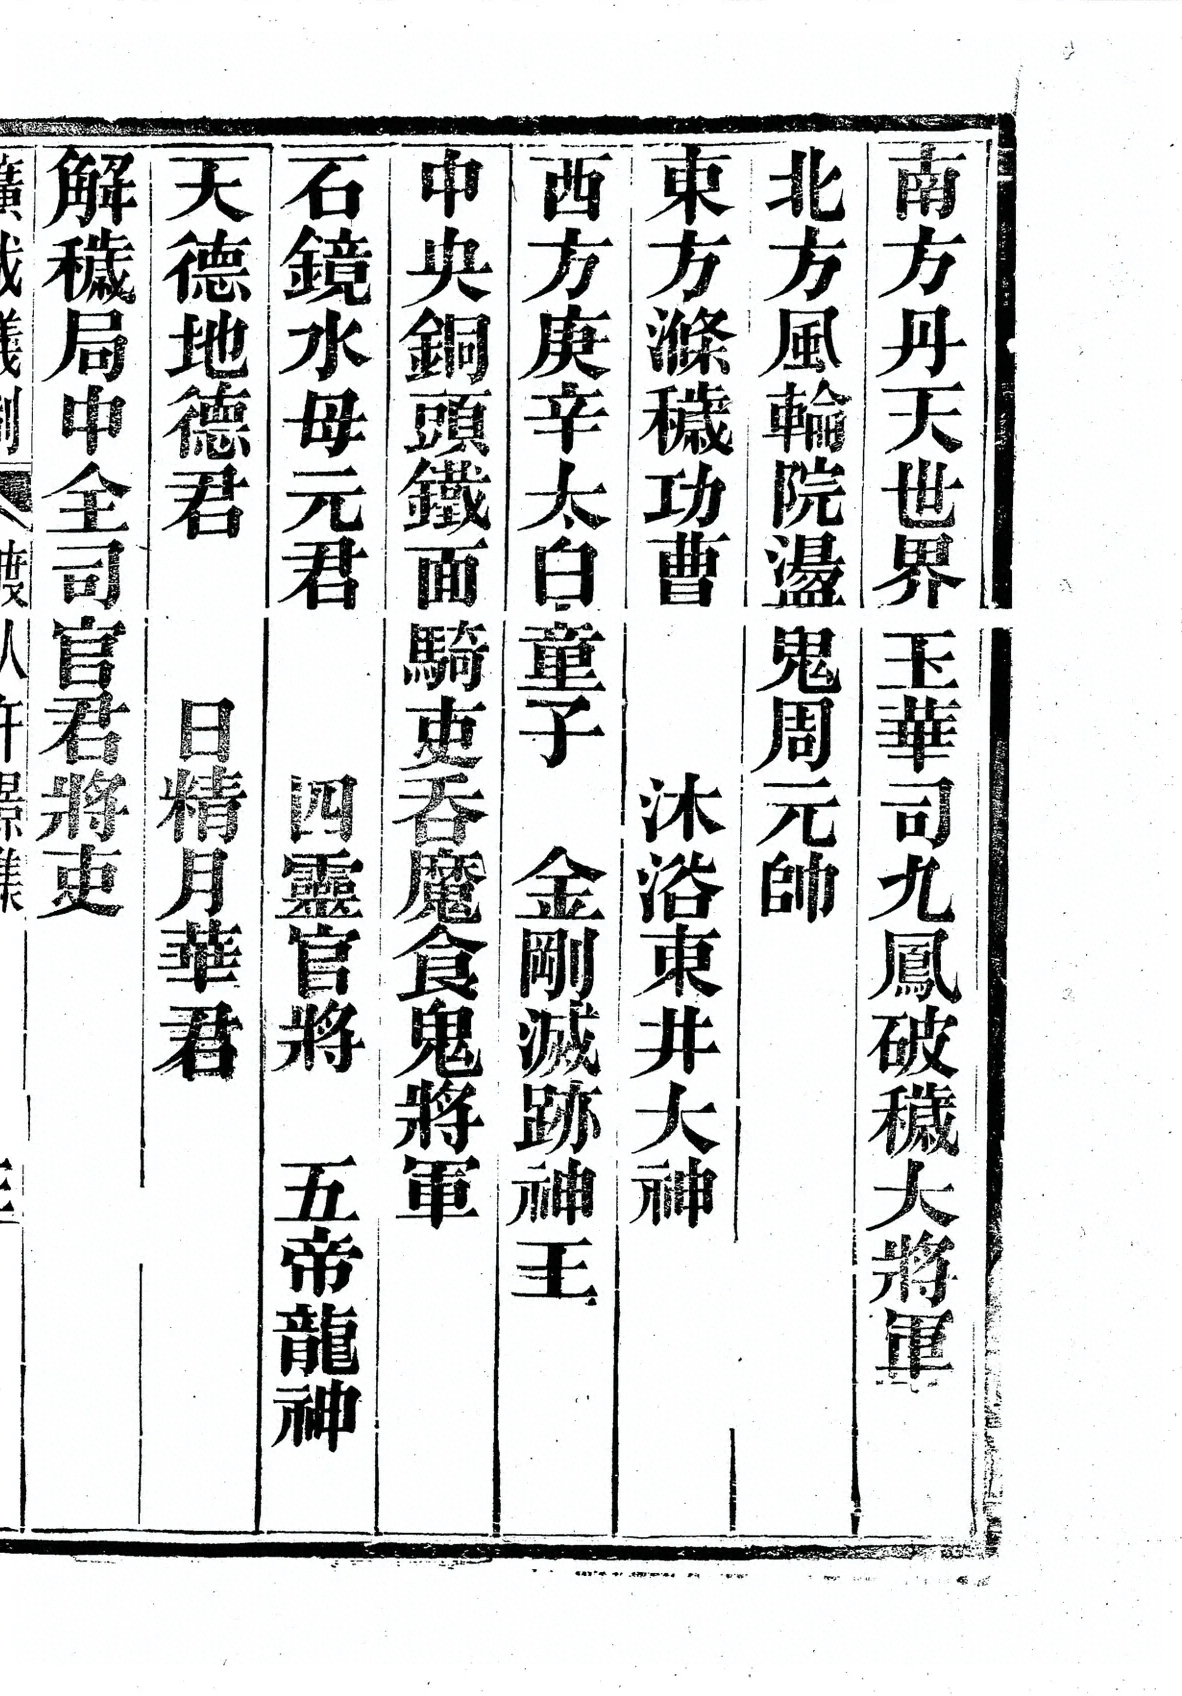 南方丹天世界　玉華司九鳳破穢大將軍
北方風輪院盪鬼周元帥
東方滌穢功曹　沐浴東井大神
西方庚辛太白童子　金剛滅跡神王
中央銅頭鐵面騎吏吞魔食鬼將軍
石鏡水母元君　四靈官將　五帝龍神
天德地德君　日精月華君
解穢局中全司官君將吏